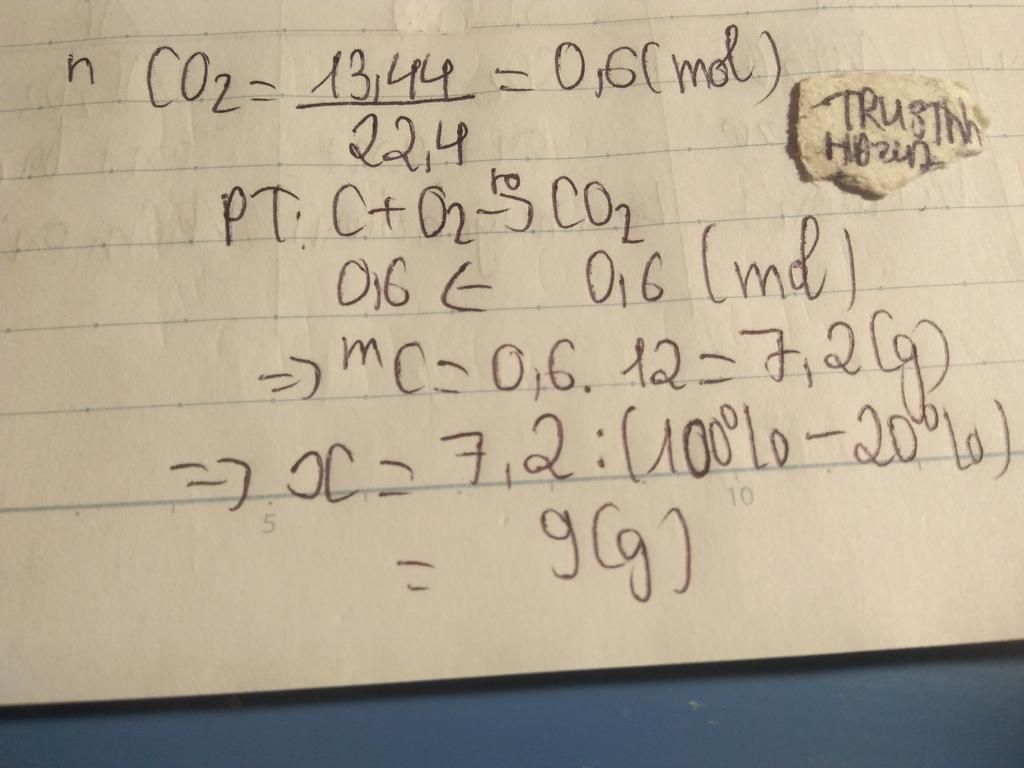 n CO2 = 13,44 / 22,4 = 0,6 (mol)
PT: C + O2 -to-> CO2
0,6 ← 0,6 (mol)
=> mC = 0,6 . 12 = 7,2 (g)
=> x = 7,2 : (100% - 20%)
= 9 (g)
5
10